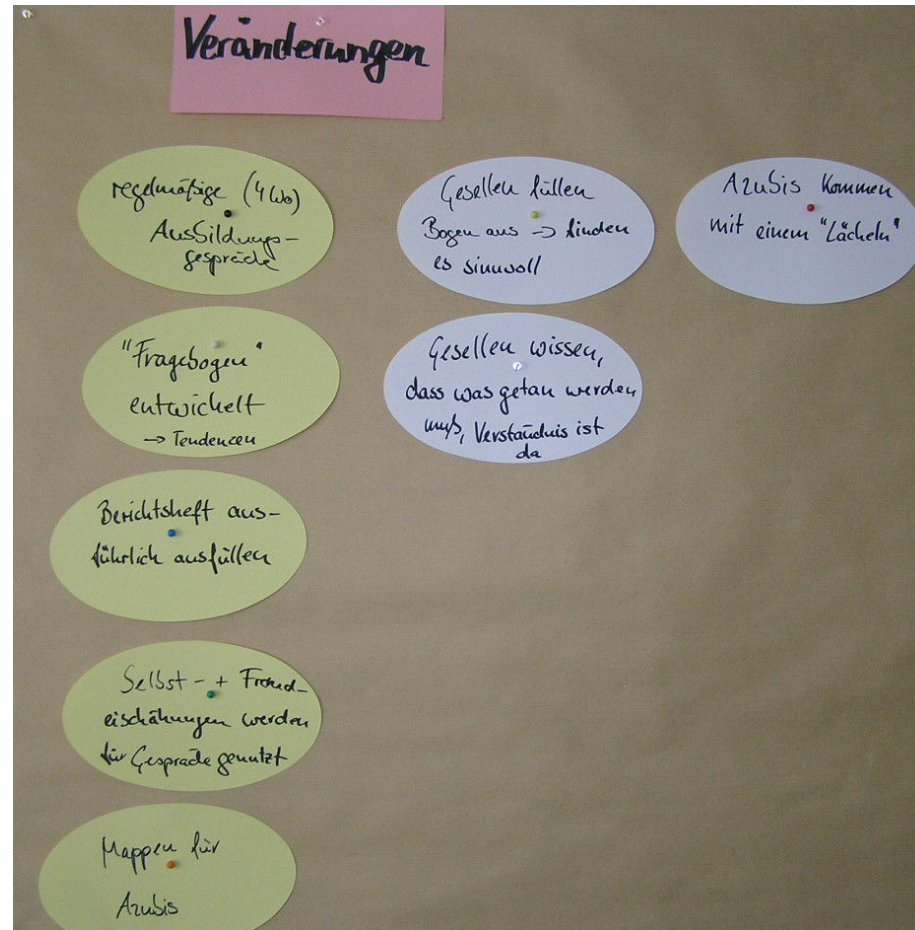 Veränderungen
regelmäßige (4 Wo)
Ausbildungs-
gespräche
"Fragebogen"
entwickelt
→ Tendenzen
Berichtsheft aus-
führlich ausfüllen
Selbst- + Fremd-
eischähungen werden
für Gespräche genutzt
Mappen für
Azubis
Gesellen füllen
Bogen aus → finden
es sinnvoll
Gesellen wissen,
dass was getan werden
muß, Verständnis ist
da
Azubis kommen
mit einem "Lächeln"